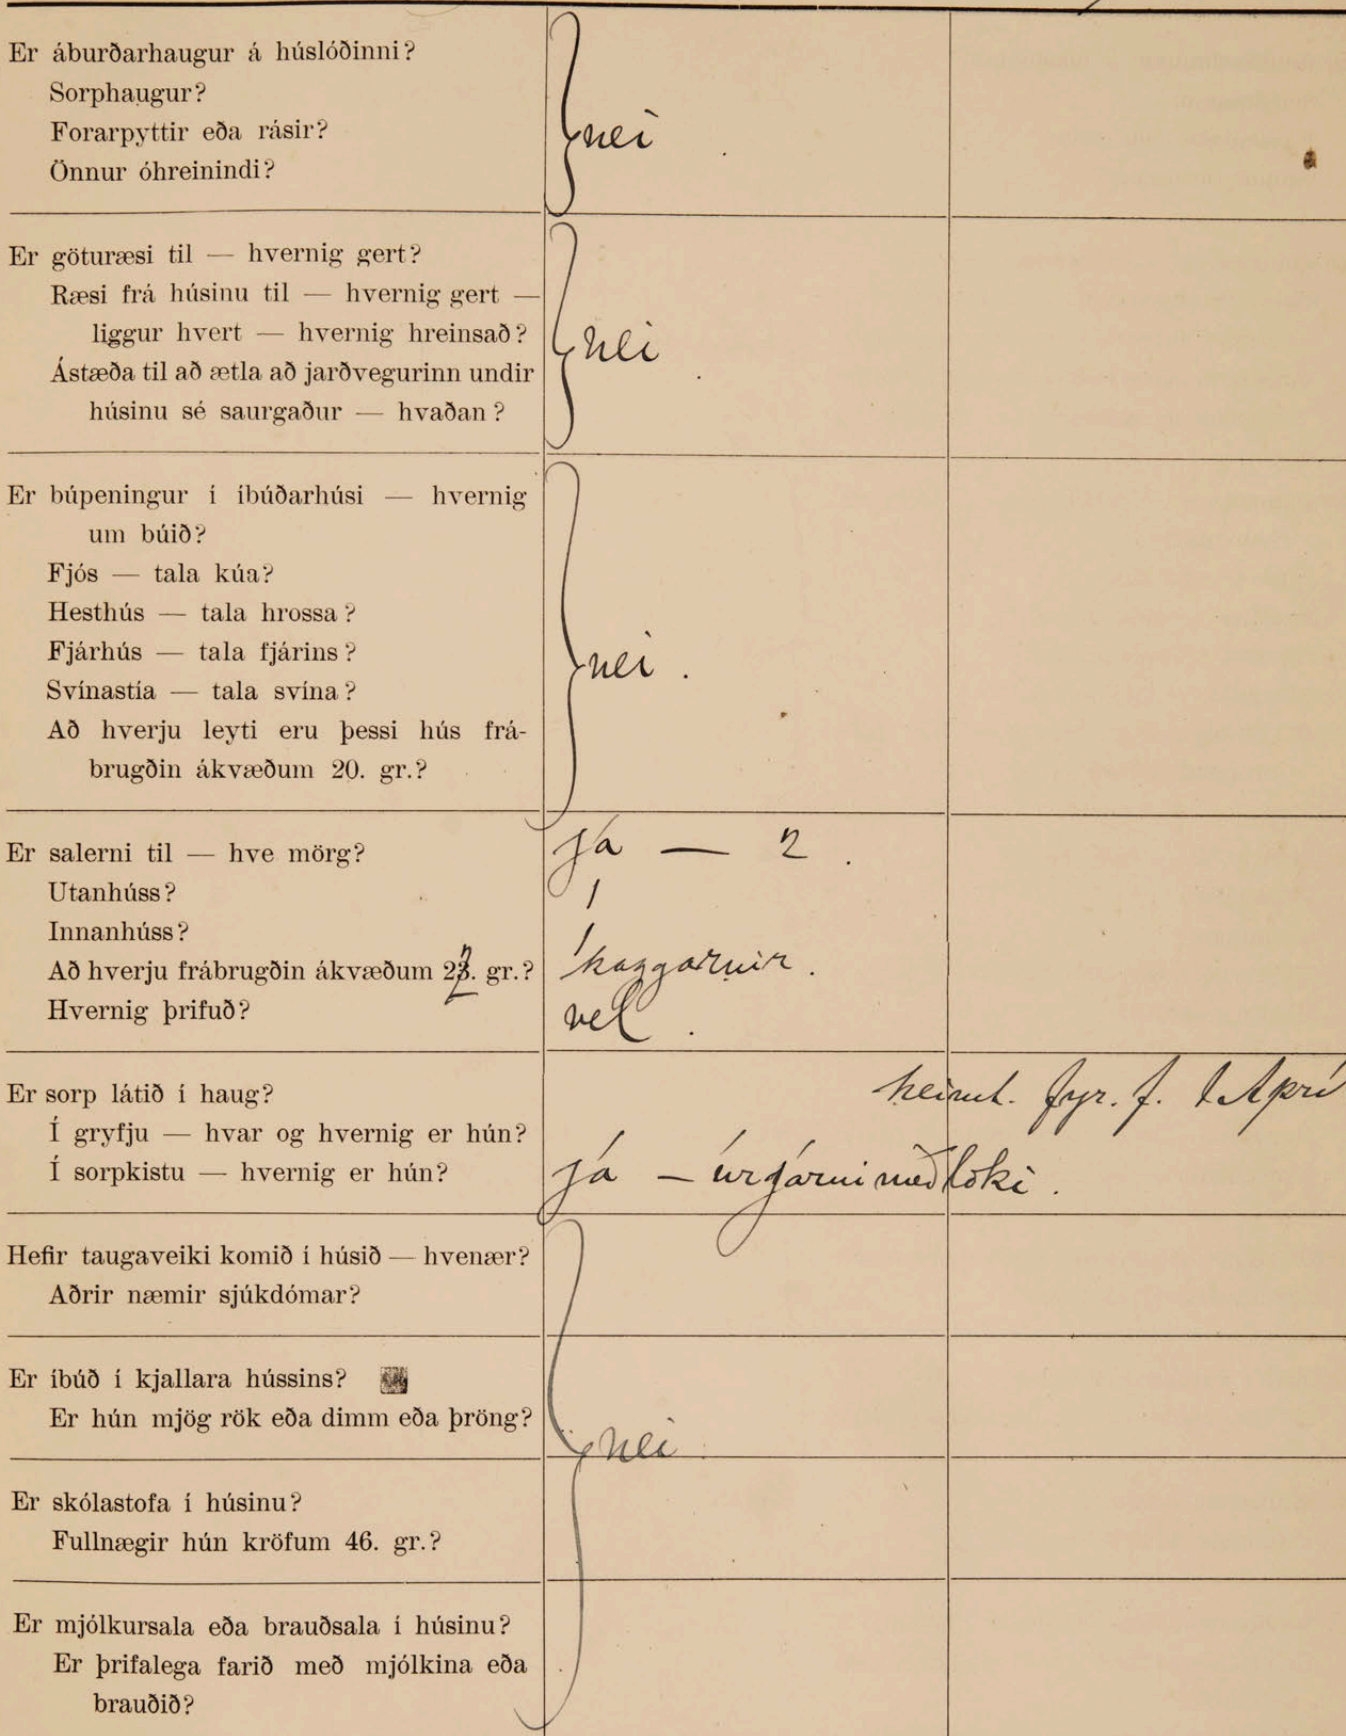 Er áburðarhaugur á húslóðinni?
Sorphaugur?
Forarpyttir eða rásir?
nei
Önnur óhreinindi?
Er göturæsi til — hvernig gert?
Ræsi frá húsinu til — hvernig gert —
liggur hvert — hvernig hreinsað?
nei
Ástæða til að ætla að jarðvegurinn undir
húsinu sé saurgaður — hvaðan?
Er búpeningur í íbúðarhúsi — hvernig
um búið?
Fjós — tala kúa?
Hesthús — tala hrossa?
Fjárhús — tala fjárins?
nei.
Svínastía — tala svína?
Að hverju leyti eru þessi hús frá-
brugðin ákvæðum 20. gr.?
Er salerni til — hve mörg? já — 2.
Utanhúss? 1
Innanhúss? 1
Að hverju frábrugðin ákvæðum 22. gr.? kaggarnir.
Hvernig þrifuð? vel.
Er sorp látið í haug? heimt. fyr. f. 1 Apri
Í gryfju — hvar og hvernig er hún?
Í sorpkistu — hvernig er hún? já — úr járni með loki.
Hefir taugaveiki komið í húsið — hvenær?
Aðrir næmir sjúkdómar?
Er íbúð í kjallara hússins?
Er hún mjög rök eða dimm eða þröng?
nei
Er skólastofa í húsinu?
Fullnægir hún kröfum 46. gr.?
Er mjólkursala eða brauðsala í húsinu?
Er þrifalega farið með mjólkina eða
brauðið?